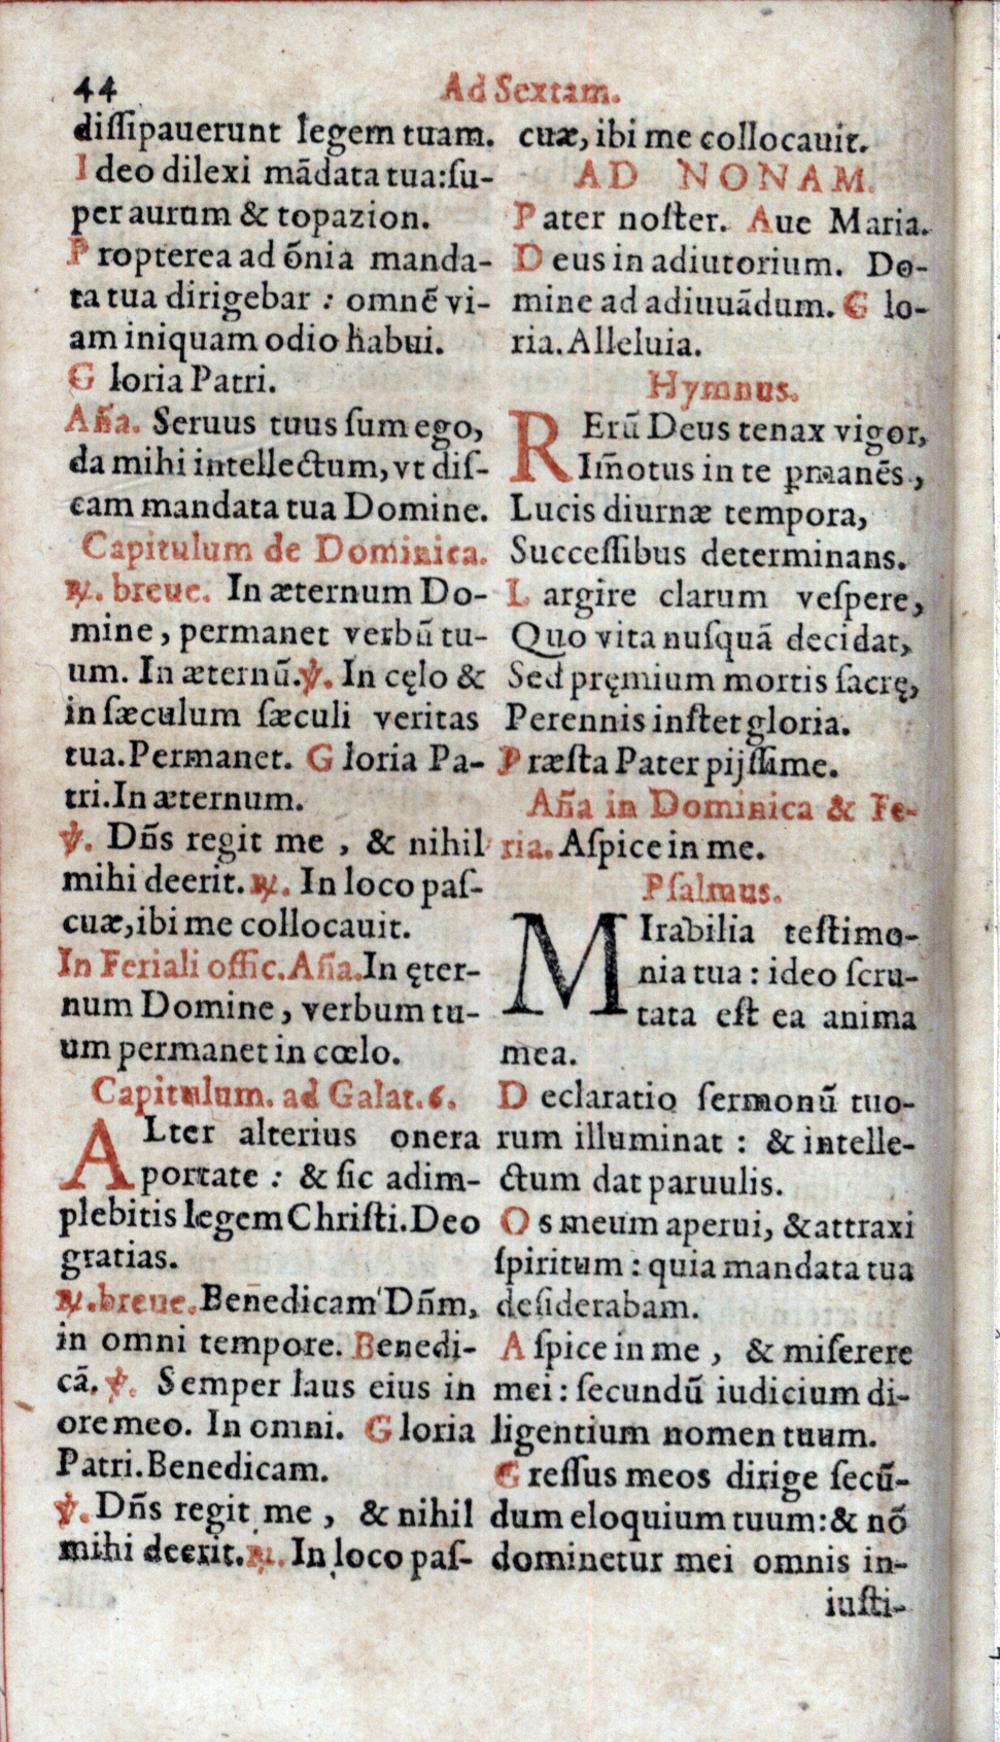 44
Ad Sextam.
diſſipauerunt legem tuam.
I deo dilexi mãdata tua:ſu-
per aurum & topazion.
P ropterea ad õnia manda-
ta tua dirigebar : omnẽ vi-
am iniquam odio habui.
G loria Patri.
Añа. Seruus tuus ſum ego,
da mihi intellectum, vt diſ-
cam mandata tua Domine.
Capitulum de Dominica.
℟. breue. In æternum Do-
mine, permanet verbũ tu-
um. In æternũ.℣. In cęlo &
in ſæculum ſæculi veritas
tua. Permanet. G loria Pa-
tri. In æternum.
℣. Dñs regit me , & nihil
mihi deerit. ℟. In loco paſ-
cuæ, ibi me collocauit.
In Feriali offic. Aña. In ęter-
num Domine, verbum tu-
um permanet in cœlo.
Capitulum. ad Galat. 6.
ALter alterius onera
portate : & ſic adim-
plebitis legem Chriſti. Deo
gratias.
℟. breue. Beñedicam Dñm,
in omni tempore. Benedi-
cã. ℣. Semper laus eius in
ore meo. In omni. G loria
Patri. Benedicam.
℣. Dñs regit me , & nihil
mihi deerit. ℟. In loco paſ-
cuæ, ibi me collocauit.
AD NONAM.
P ater noſter. Aue Maria.
D eus in adiutorium. Do-
mine ad adiuuãdum. G lo-
ria. Alleluia.
Hymnus.
RErũ Deus tenax vigor,
Im̃otus in te ꝑmanẽs,
Lucis diurnæ tempora,
Succeſſibus determinans.
L argire clarum veſpere,
Quo vita nuſquã decidat,
Sed pręmium mortis ſacrę,
Perennis inſtet gloria.
P ræſta Pater pijſſime.
Aña in Dominica & Fe-
ria. Aſpice in me.
Pſalmus.
MIrabilia teſtimo-
nia tua : ideo ſcru-
tata eſt ea anima
mea.
D eclaratio ſermonũ tuo-
rum illuminat : & intelle-
ctum dat paruulis.
O s meum aperui, & attraxi
ſpiritum : quia mandata tua
deſiderabam.
A ſpice in me , & miſerere
mei : ſecundũ iudicium di-
ligentium nomen tuum.
G reſſus meos dirige ſecũ-
dum eloquium tuum: & nõ
dominetur mei omnis in-
iuſti-